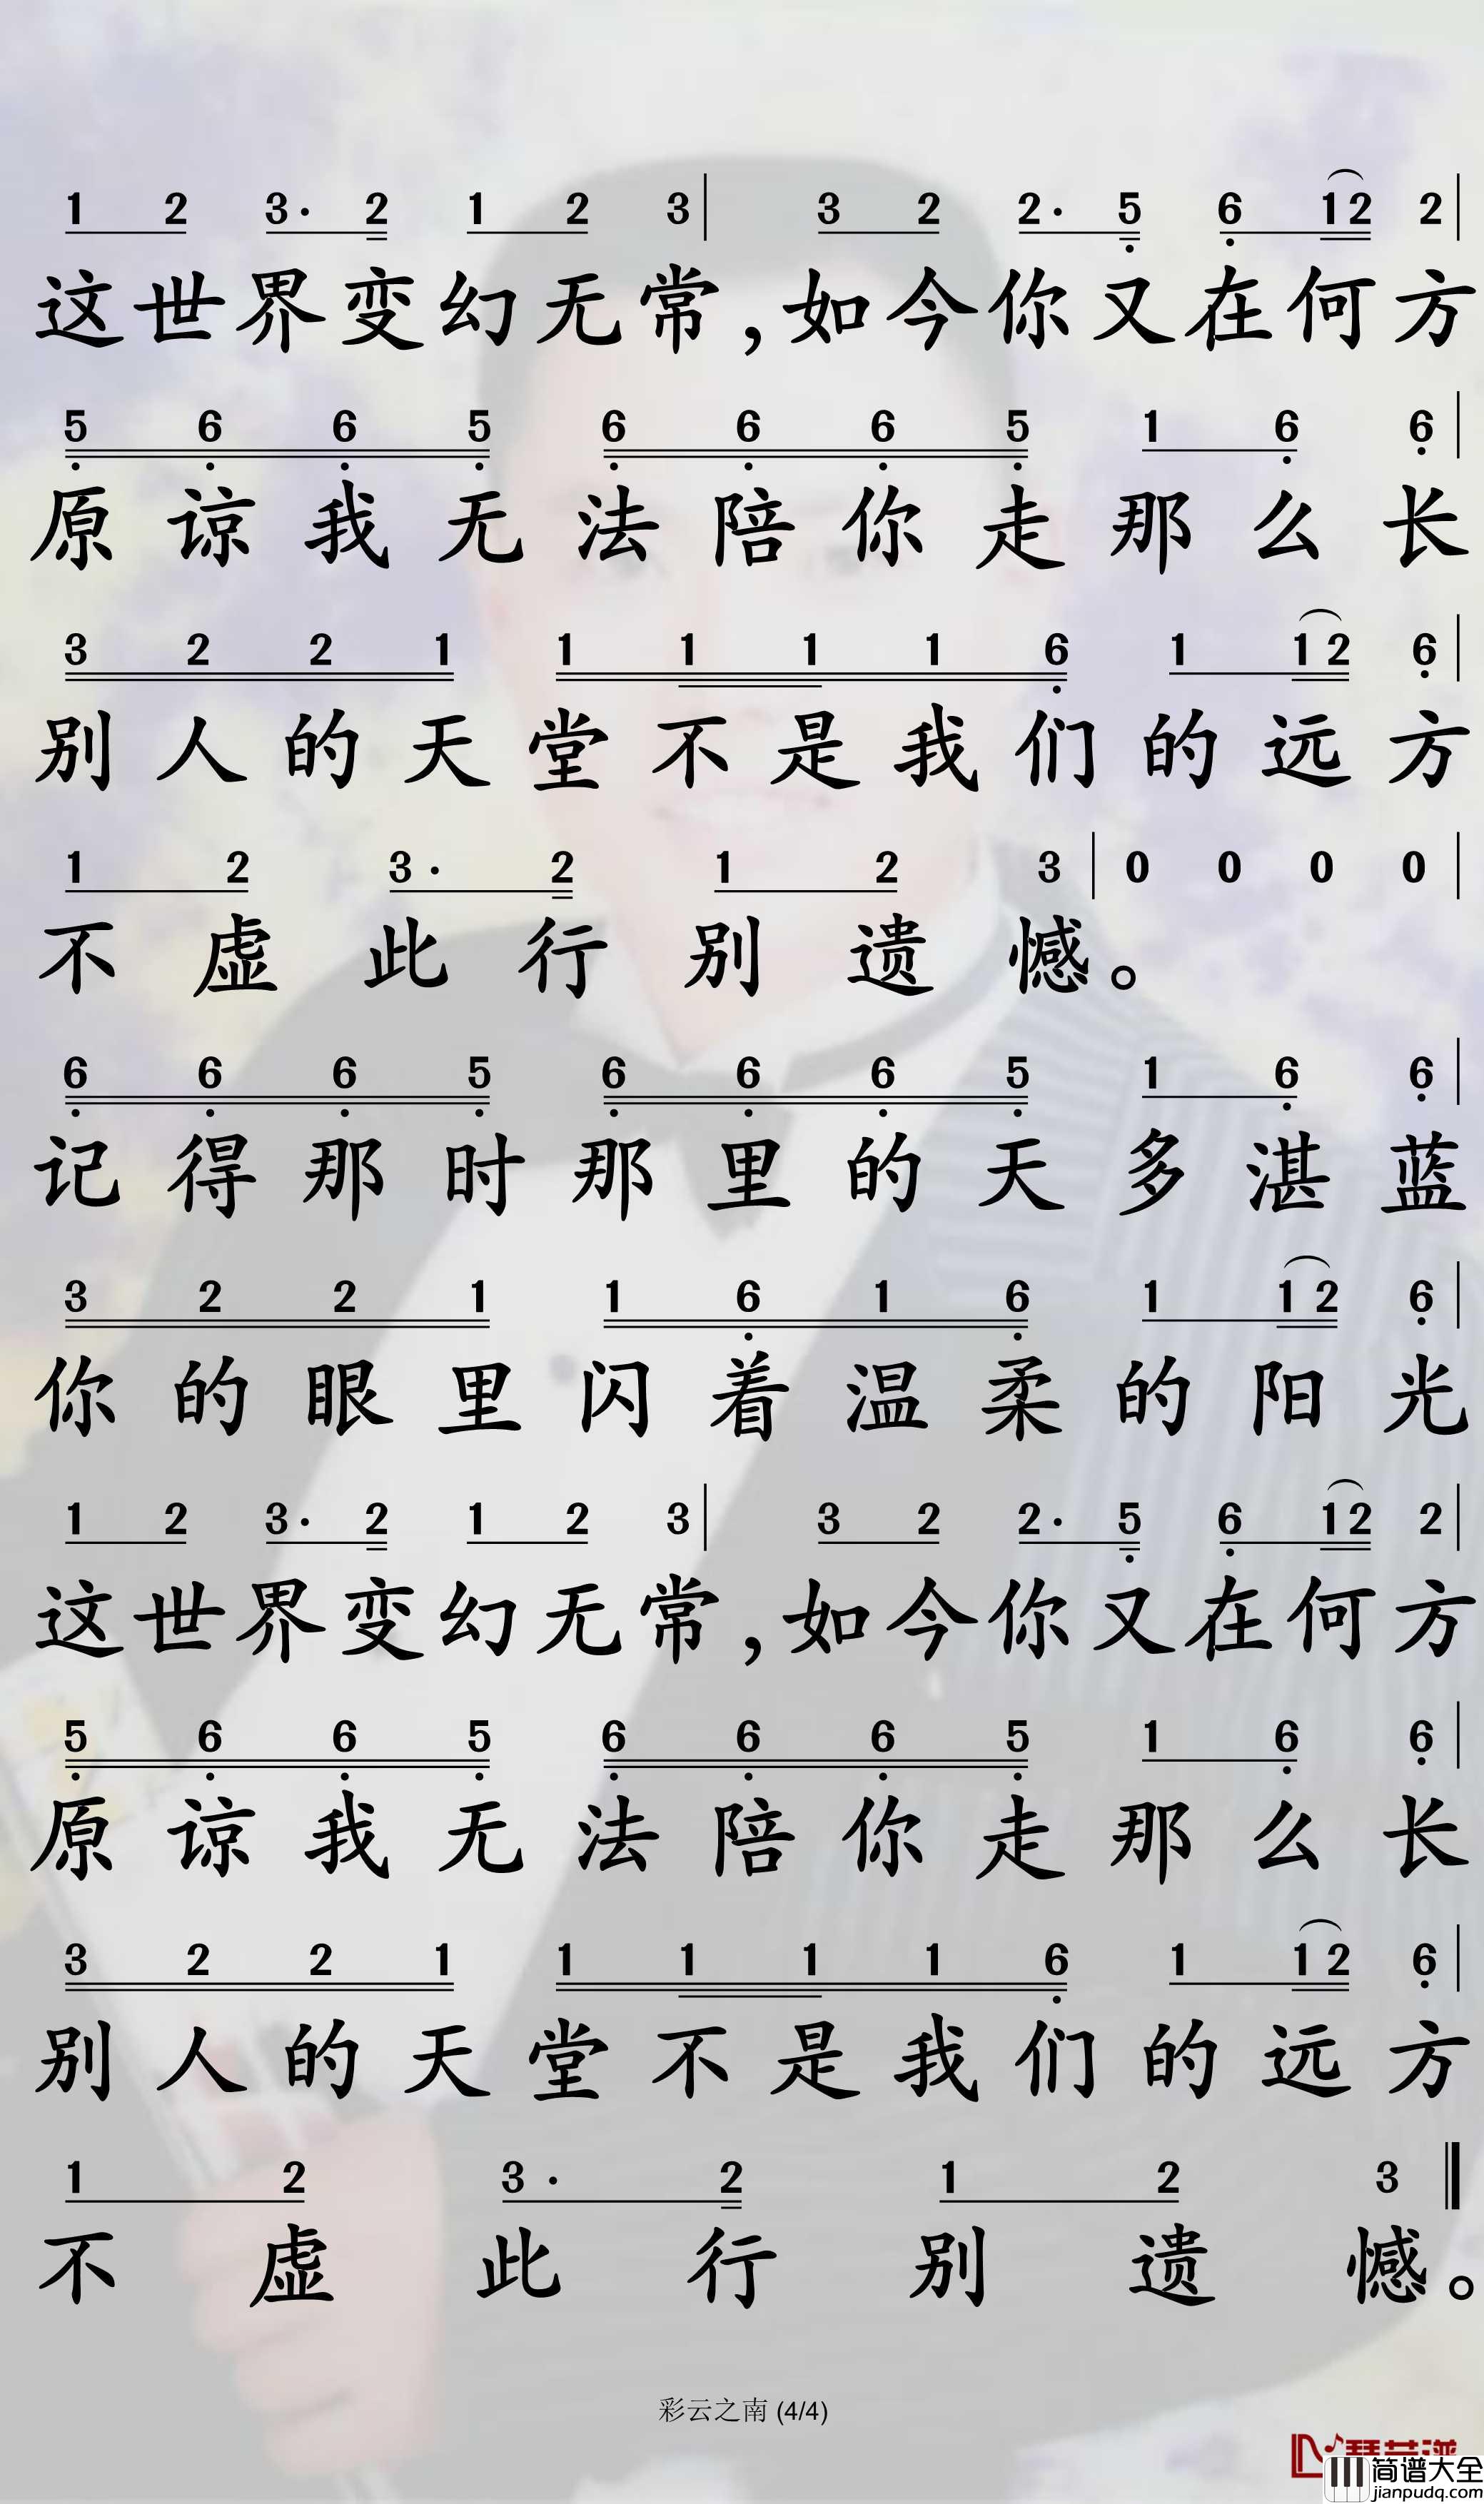 1 2 3· 2 1 2 3 | 3 2 2· 5 6 12 2 |
这世界变幻无常,如今你又在何方
5 6 6 5 6 6 6 5 1 6 6 |
原谅我无法陪你走那么长
3 2 2 1 1 1 1 1 6 1 12 6 |
别人的天堂不是我们的远方
1 2 3· 2 1 2 3 | 0 0 0 0 |
不虚此行别遗憾。
6 6 6 5 6 6 6 5 1 6 6 |
记得那时那里的天多湛蓝
3 2 2 1 1 6 1 6 1 12 6 |
你的眼里闪着温柔的阳光
1 2 3· 2 1 2 3 | 3 2 2· 5 6 12 2 |
这世界变幻无常,如今你又在何方
5 6 6 5 6 6 6 5 1 6 6 |
原谅我无法陪你走那么长
3 2 2 1 1 1 1 1 6 1 12 6 |
别人的天堂不是我们的远方
1 2 3· 2 1 2 3
不虚此行别遗憾。
彩云之南 (4/4)
简谱大全
jianpudq.com